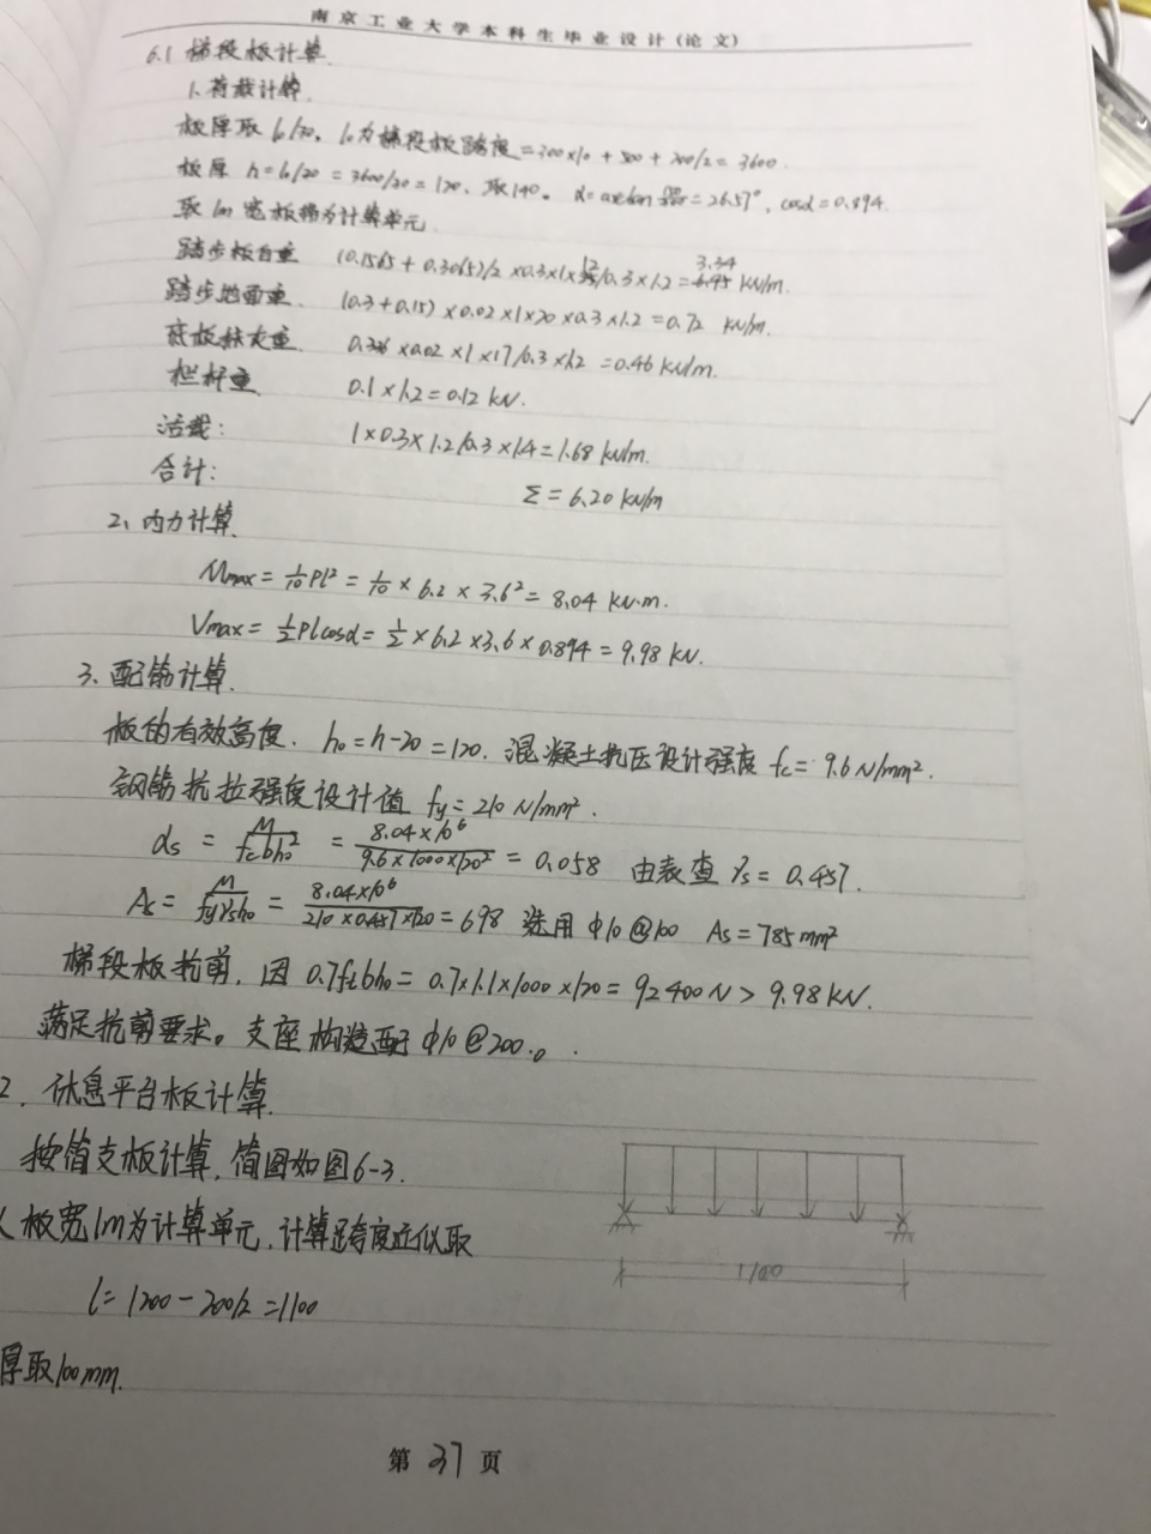 南京工业大学本科生毕业设计(论文)
6.1 梯段板计算.
1. 荷载计算.
板厚取 l₀/30, l₀为梯段板跨度=300×10 + 500 + 200/2 = 3600.
板厚 h=l₀/30 = 3600/30 = 120. 取140。 α=arctan = 26.57°, cosα=0.894.
取 1m 宽板带为计算单元.
踏步板自重 (0.1565 + 0.3065)/2 ×0.3×1× /0.3×1.2 = 3.34 kN/m.
踏步地面重 (0.3+0.15) ×0.02×1×20×0.3×1.2 =0.72 kN/m.
底板抹灰重 0.336 ×0.02 ×1 ×17/0.3 ×1.2 =0.46 kN/m.
栏杆重 0.1×1.2=0.12 kN.
活载: 1×0.3×1.2/0.3×1.4=1.68 kN/m.
合计: Σ = 6.20 kN/m
2、内力计算.
Mmax = 1/10 Pl² = 1/10 × 6.2 × 3.6² = 8.04 kN·m.
Vmax = 1/2 Plcosα = 1/2 ×6.2 ×3.6 ×0.894 = 9.98 kN.
3、配筋计算.
板的有效高度. h₀=h-20=120. 混凝土抗压设计强度 fc= 9.6 N/mm².
钢筋抗拉强度设计值 fy=210 N/mm².
αs = M/fcbh₀² = 8.04×10⁶/9.6×1000×120² = 0.058 由表查 γs = 0.457.
As = M/fyγsh₀ = 8.04×10⁶/210×0.457×120 = 698 选用 Φ10@100 As=785mm²
梯段板抗剪, 因 0.7ftbh₀= 0.7×1.1×1000×120= 92400N > 9.98kN.
满足抗剪要求。支座构造配 Φ10@200.。
2. 休息平台板计算.
按简支板计算, 简图如图6-3.
板宽1m为计算单元, 计算跨度近似取
l= 1200-200/2 =1100
厚取100mm.
1100
第 37 页